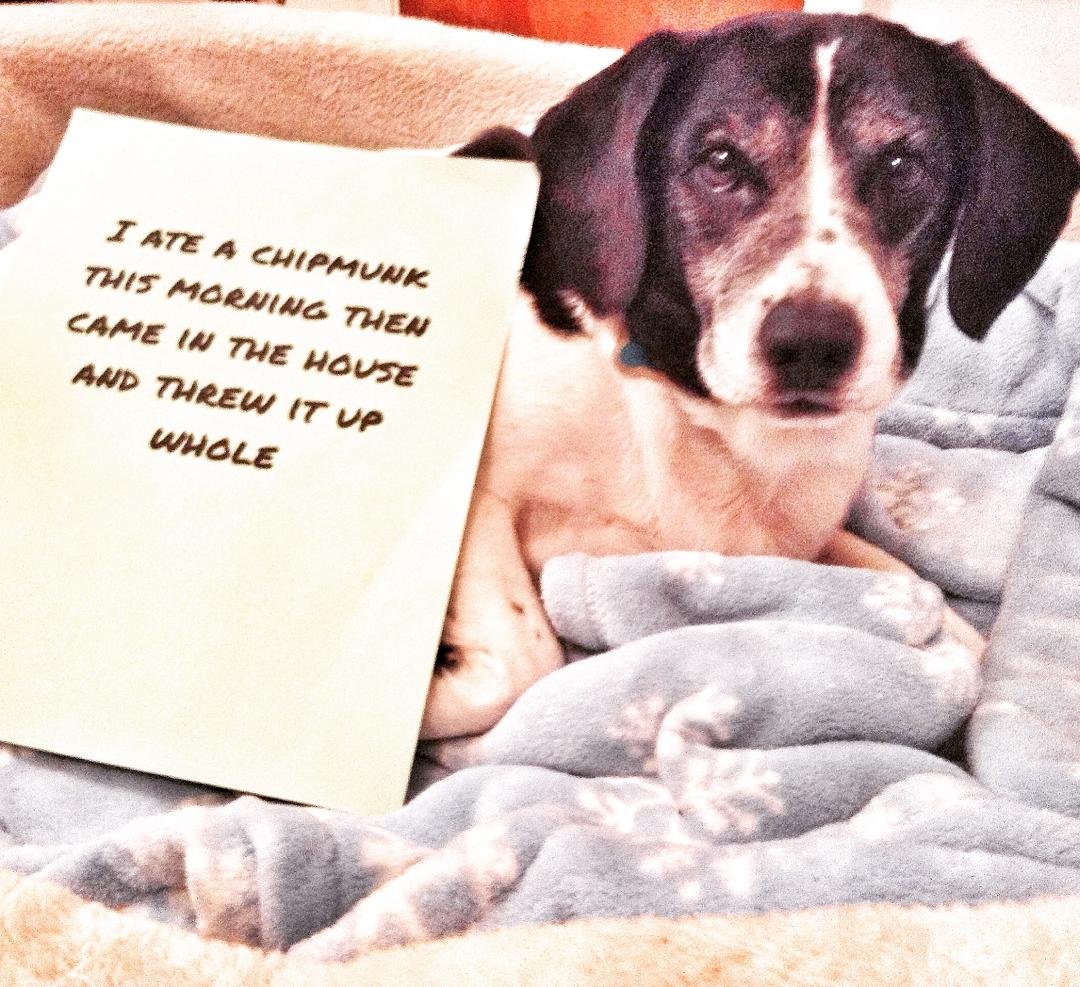 I ATE A CHIPMUNK
THIS MORNING THEN
CAME IN THE HOUSE
AND THREW IT UP
WHOLE